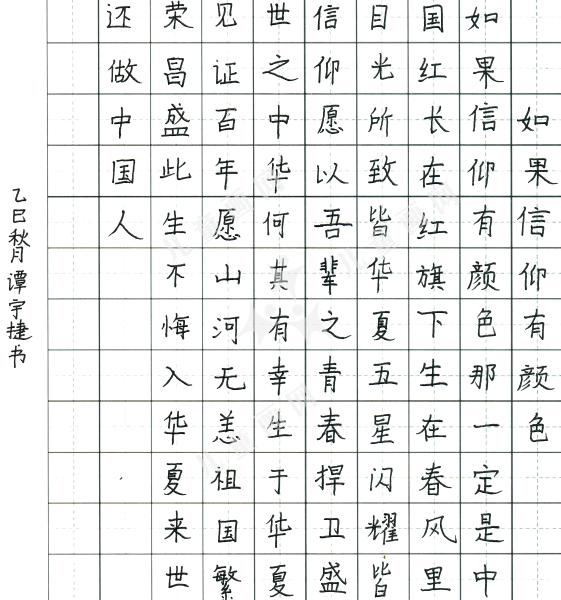 如果信仰有颜色
如果信仰有颜色那一定是中
国红长在红旗下生在春风里
目光所致皆华夏五星闪耀皆
信仰愿以吾辈之青春捍卫盛
世之中华何其有幸生于华夏
见证百年愿山河无恙祖国繁
荣昌盛此生不悔入华夏来世
还做中国人
乙巳秋月谭宇捷书